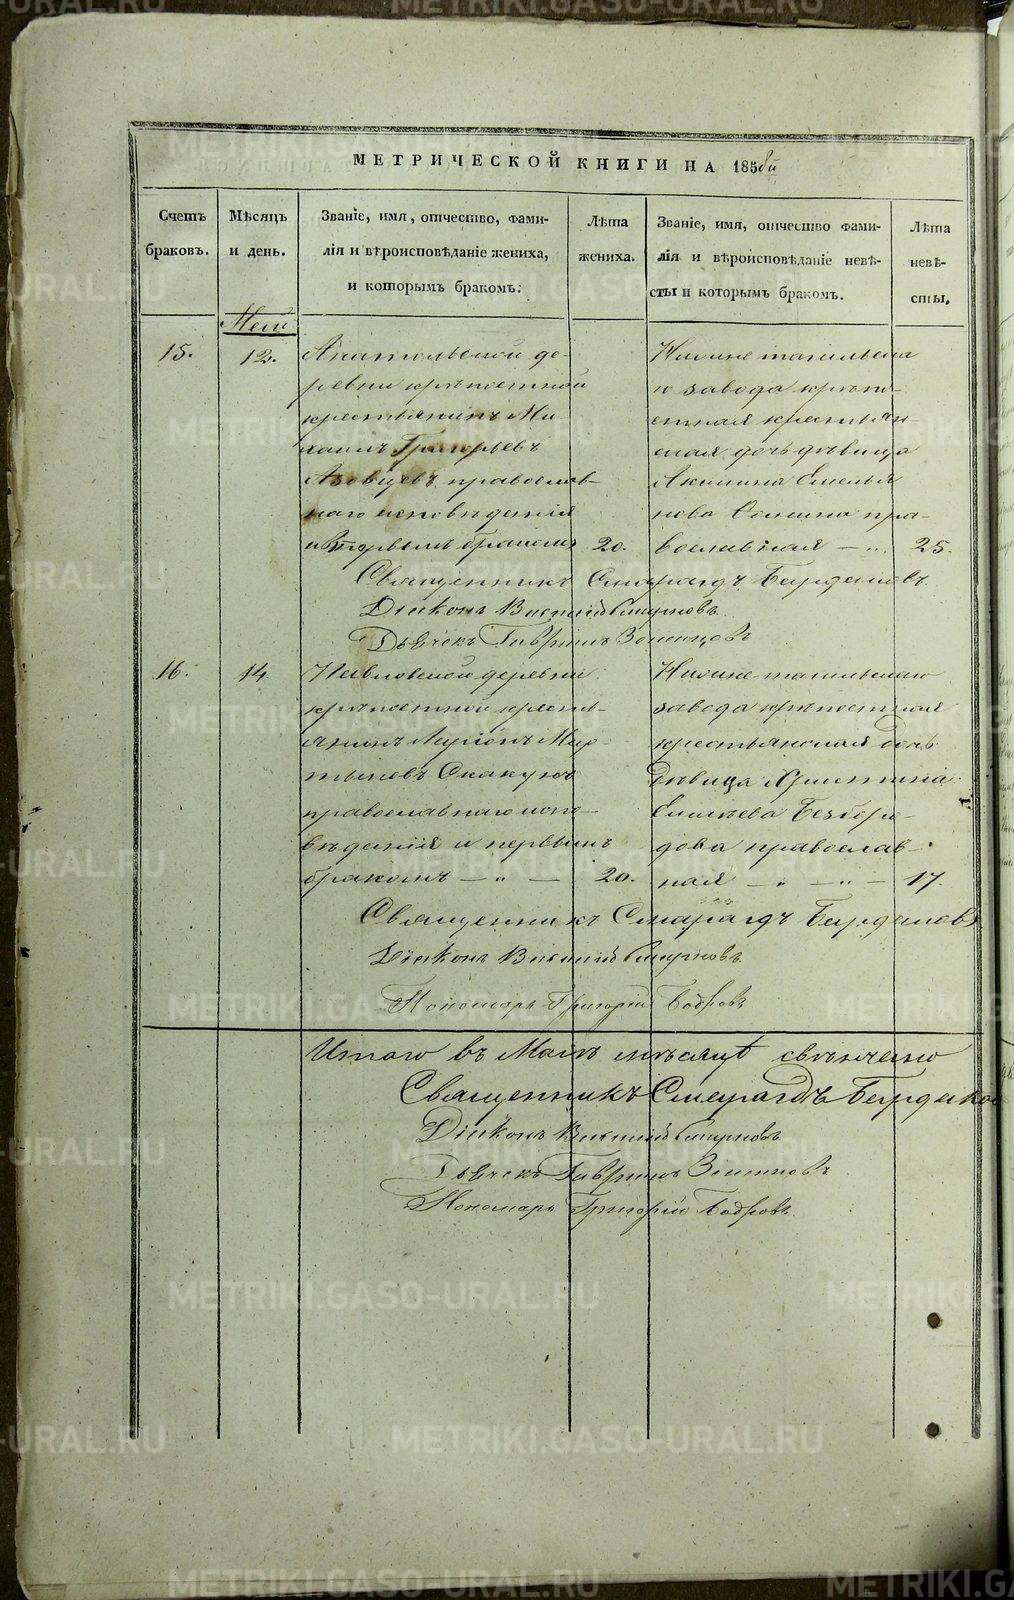 МЕТРИЧЕСКОЙ КНИГИ НА 185
Счетъ браковъ.
Мѣсяцъ и день.
Званіе, имя, отчество, фами-
лія и вѣроисповѣданіе жениха,
и которымъ бракомъ.
Лѣта жениха.
Званіе, имя, отчество фами-
лія и вѣроисповѣданіе невѣ-
сты и которымъ бракомъ.
Лѣта невѣ-
сты.
Маій
15. 12.
Анатольской де-
ревни крѣпостной
крестьянинъ Ми-
хаилъ Григорьевъ
православ-
наго исповѣданія
первымъ бракомъ 20.
Нижнетагильска
го завода крѣпо-
стная крестьян-
ская дочь дѣвица
Акилина Емелья
нова Сомина пра-
вославная — „ 25.
Священникъ Смарагдъ
Діаконъ Василій Смирновъ
Дьячекъ Гавріилъ
16. 14.
Павловской деревни
крѣпостной кресть-
янинъ Ларіонъ Мар-
тыновъ Скакунъ
православнаго испо-
вѣданія и первымъ
бракомъ — „ — 20.
Нижне-тагильскаго
завода крѣпостная
крестьянская дочь
Дѣвица Христинія
Елисѣева Безборо-
дова православ-
ная — „ — „ — 17.
Священникъ Смарагдъ
Діаконъ Василій Смирновъ
Пономарь Григорій Бобровъ
Итого въ Маіѣ мѣсяцѣ свѣнчено
Священникъ Смарагдъ
Діаконъ Василій Смирновъ
Дьячекъ Гавріилъ
Пономарь Григорій Бобровъ
METRIKI.GASO-URAL.RU